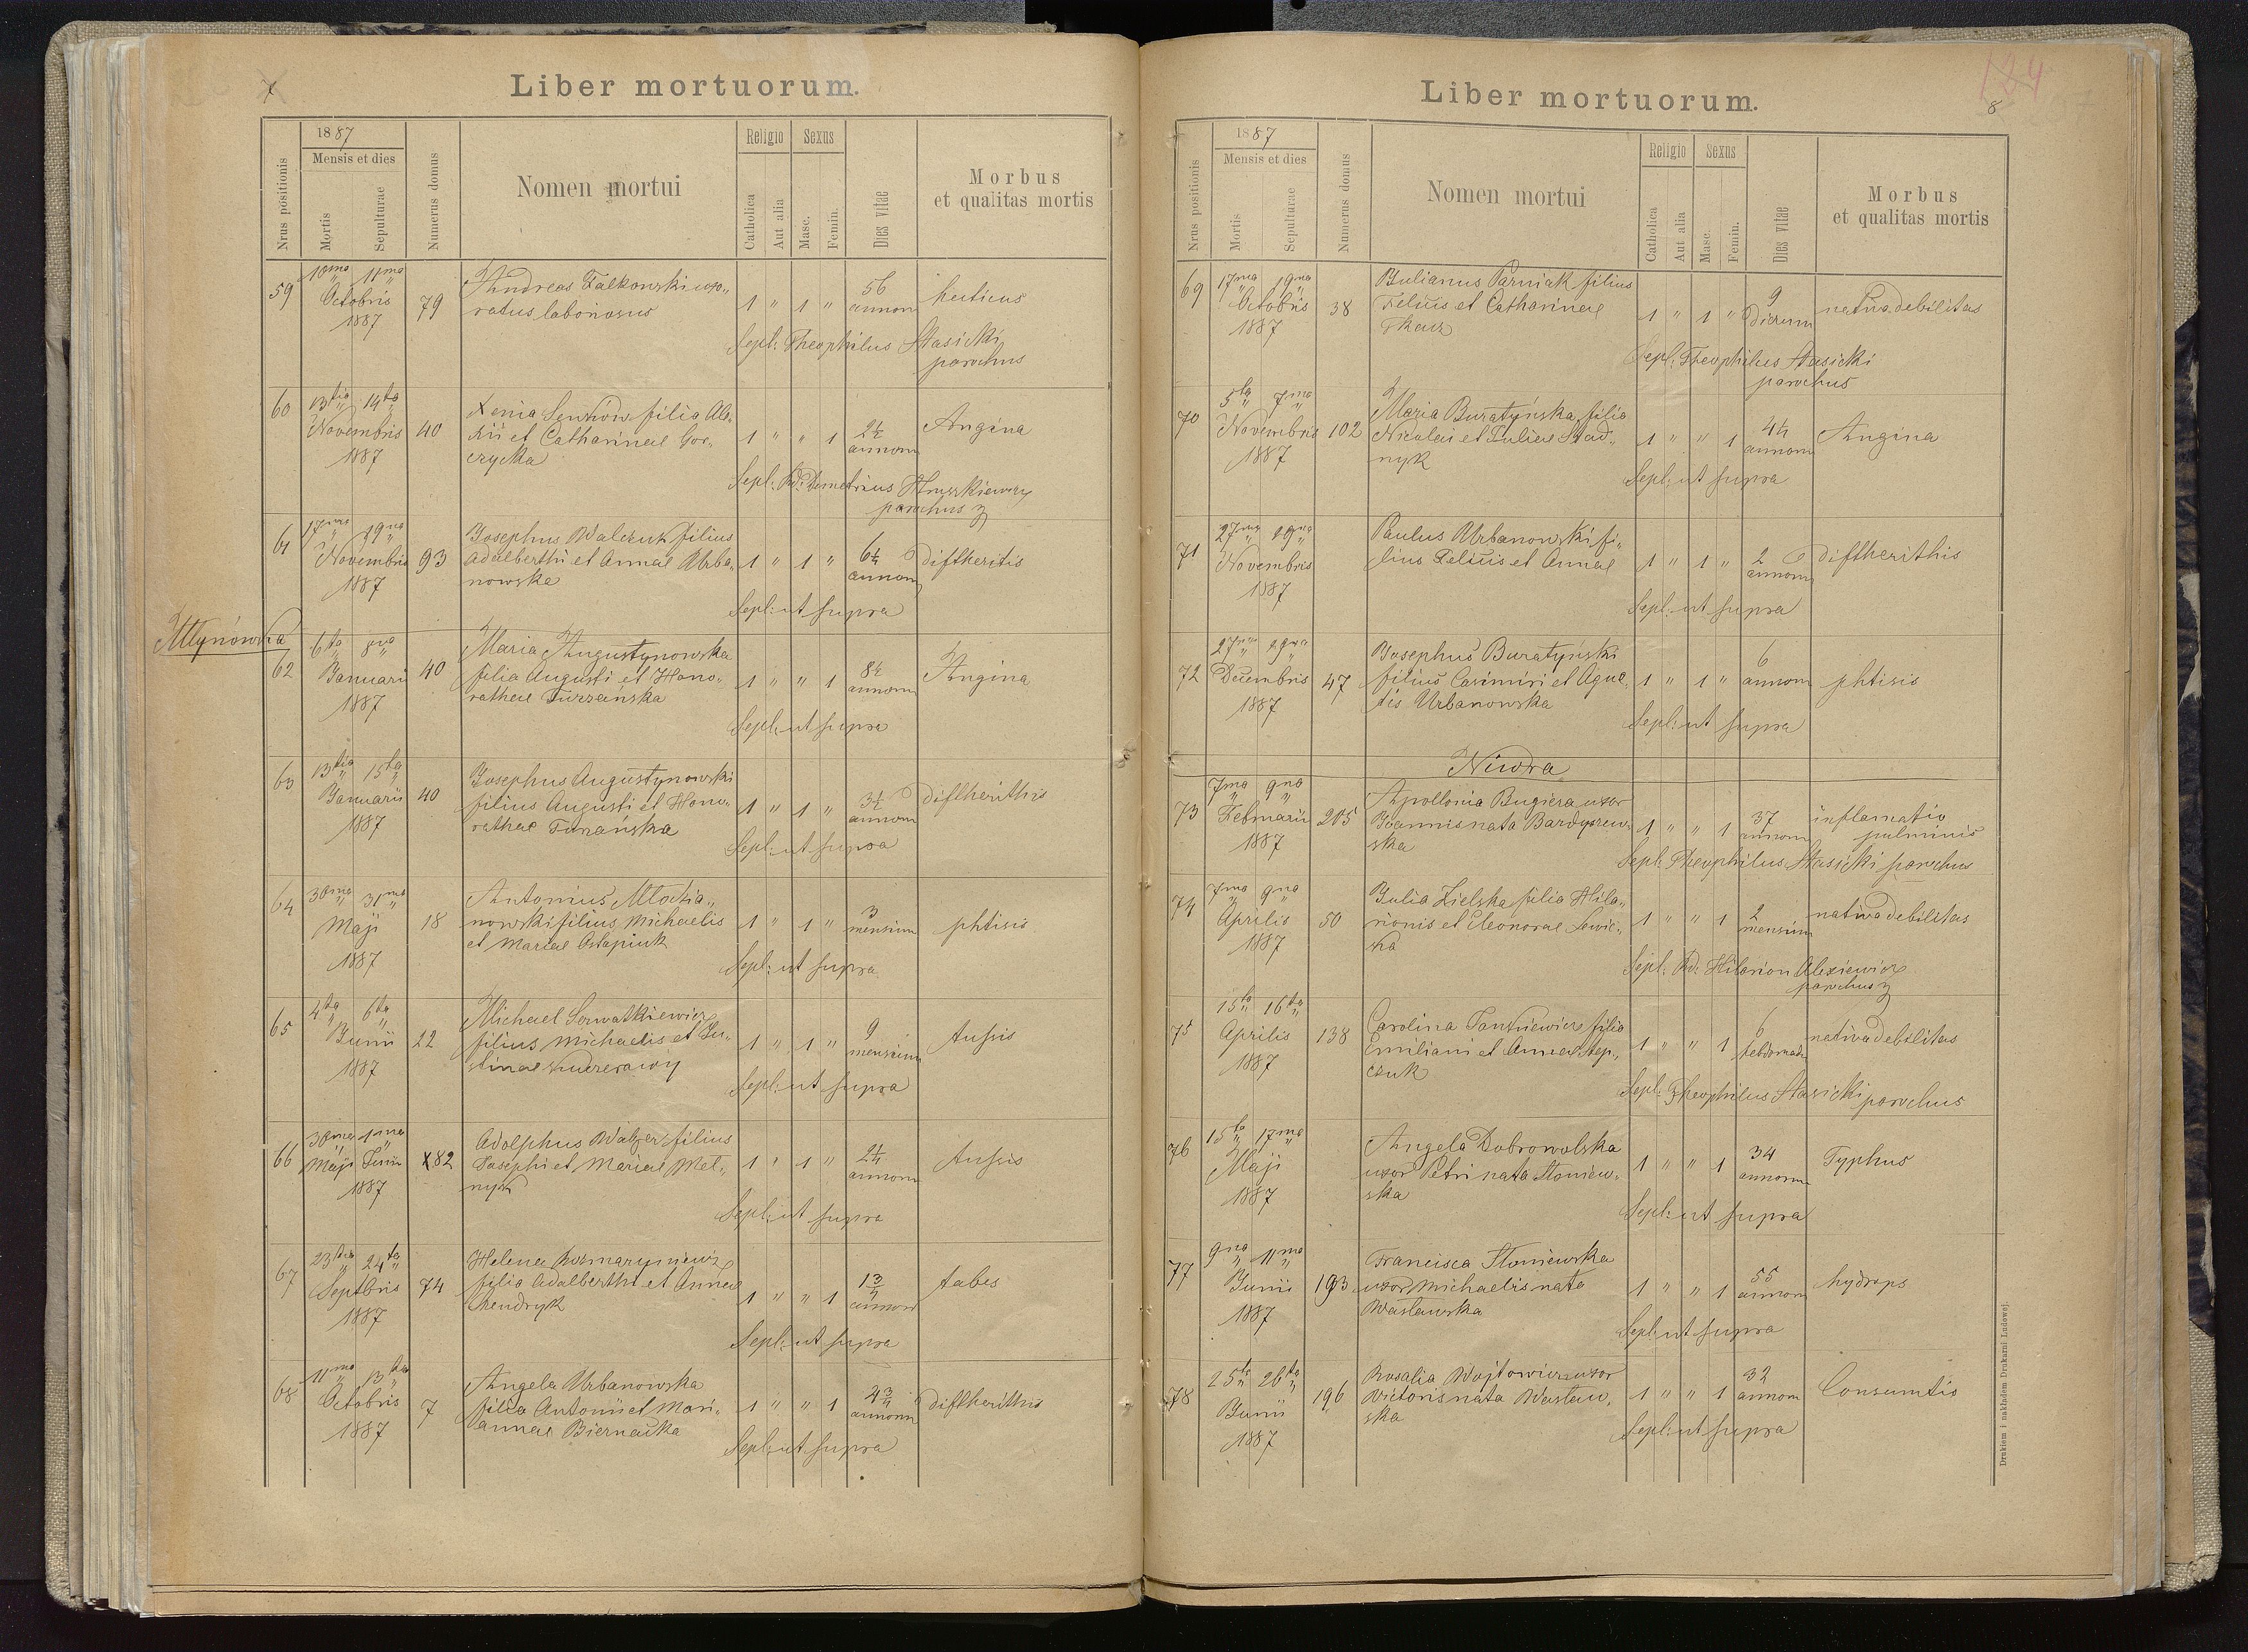 7
Liber mortuorum.
Nrus positionis
1887
Mensis et dies
Mortis
Sepulturae
Numerus domus
Nomen mortui
Religio
Catholica
Aut alia
Sexus
Masc.
Femin.
Dies vitae
Morbus
et qualitas mortis
59 10ma 11ma Octobris 1887 79
Andreas Falkowski uxo„
ratus laboriosus
1 " 1 " 56 annorum hecticus
Sepl: Theophilus Stasicki
parochus
60 13tia 14ta Novembris 1887 40
Xenia Senków filia Ale„
xii et Catharinae Gor„
czycka
1 " " 1 2½ annorum Angina
Sepl: Rd: Demetrius Hruszkiewicz
parochus
61 17ma 19na Novembris 1887 93
Josephus Walczuk filius
Adalberthi et Annae Urba„
nowska
1 " 1 " annorum diftheritis
Sepl: ut supra
Młynówka
62 6ta 8va Januarii 1887 40
Maria Augustynowska
filia Augusti et Hono„
rathae Turzańska
1 " " 1 8½ annorum Angina
Sepl: ut supra
63 13tia 15ta Januarii 1887 40
Josephus Augustynowski
filius Augusti et Hono„
rathae Turzańska
1 " 1 " 3½ annorum diftherithis
Sepl: ut supra
64 30ma 31ma Maji 1887 18
Antonius Młocia„
nowski filius Michaelis
et Mariae Ostapiuk
1 " 1 " 3 mensium phtisis
Sepl: ut supra
65 4ta 6ta Junii 1887 22
Michael Serwatkiewicz
filius Michaelis et Ju„
stinae
1 " 1 " 9 mensium tussis
Sepl: ut supra
66 30ma 1ma Maji Junii 1887 82
Adolphus Walzer filius
Josephi et Mariae Mel„
nyk
1 " 1 " annorum tussis
Sepl: ut supra
67 23tia 24ta Septbris 1887 74
Helena Rozmaryniewicz
filia Adalberthi et Annae
Chendryk
1 " " 1 1¾ annorum tabes
Sepl: ut supra
68 11ma 13tia Octobris 1887 7
Angela Urbanowska
filia Antonii et Mari„
annae Biernacka
1 " " 1 4¾ annorum diftherithis
Sepl: ut supra
184
8
Liber mortuorum.
Nrus positionis
1887
Mensis et dies
Mortis
Sepulturae
Numerus domus
Nomen mortui
Religio
Catholica
Aut alia
Sexus
Masc.
Femin.
Dies vitae
Morbus
et qualitas mortis
69 17ma 19na Octobris 1887 38
Julianus Parniak filius
Felicis et Catharinae
Tkacz
1 " 1 " 9 dierum nativa debilitas
Sepl: Theophilus Stasicki
parochus
70 5ta 7ma Novembris 1887 102
Maria Buratyńska filia
Nicolai et Juliae Stad„
nyk
1 " " 1 annorum Angina
Sepl: ut supra
71 27ma 29na Novembris 1887
Paulus Urbanowski fi„
lius Felicis et Annae
1 " 1 " 2 annorum diftherithis
Sepl: ut supra
72 27ma 29na Decembris 1887 47
Josephus Buratyński
filius Casimiri et Agne„
tis Urbanowska
1 " 1 " 6 annorum phtisis
Sepl: ut supra
Niwra
73 7ma 9na Februarii 1887 205
Apollonia Bugiera uxor
Joannis nata Bardyszew„
ska
1 " " 1 37 annorum inflamatio
pulminis
Sepl: Theophilus Stasicki parochus
74 7ma 9na Aprilis 1887 50
Julia Zielska filia Hila„
rionis et Eleonorae Lewic„
ka
1 " " 1 2 mensium nativa debilitas
Sepl: Rd: Hilarion Alexiewicz
parochus
75 15ta 16ta Aprilis 1887 138
Carolina Tankiewicz filia
Emiliani et Annae Step„
czuk
1 " " 1 6 hebdomada nativa debilitas
Sepl: Theophilus Stasicki parochus
76 15ta 17ma Maji 1887
Angela Dobrowolska
uxor Petri nata Słoniew„
ska
1 " " 1 34 annorum Typhus
Sepl: ut supra
77 9na 11ma Junii 1887 193
Francisca Słoniewska
uxor Michaelis nata
Wasławska
1 " " 1 55 annorum hydrops
Sepl: ut supra
78 25ta 26ta Junii 1887 196
Rosalia Wojtowicz uxor
Victoris nata Wasław„
ska
1 " " 1 32 annorum Consumtio
Sepl: ut supra
Drukiem i nakładem Drukarni Ludowej.